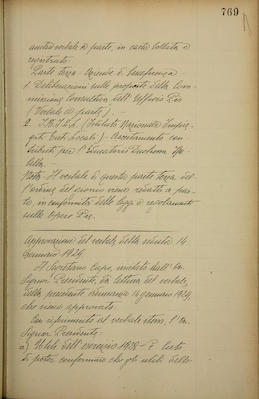 769
verbale a parte, in carta bollata e
registrato.
Parte terza - Aziende di beneficenza -
1. Deliberazioni sulle proposte della Com-
missione Consultiva dell'Ufficio Pio
(Verbale a parte).
2. (Istituto Nazionale Impie-
gati Enti Locali) - 
per l'Educatorio Duchessa
Nota - Il verbale di questa parte terza del-
l'ordine del giorno viene redatto a par-
te, in conformità delle leggi e regolamenti
sulle Opere Pie.
Approvazione del verbale della seduta 16
Gennaio 1929
Il Segretario Capo, invitato dall'On.
Signor Presidente, dà lettura del verbale
della precedente adunanza 16 gennaio 1929,
che viene approvato.
Con riferimento al verbale stesso, l'On.
Signor Presidente:
a) Utile dell'esercizio 1928 - È lieto
di poter confermare che gli utili dello